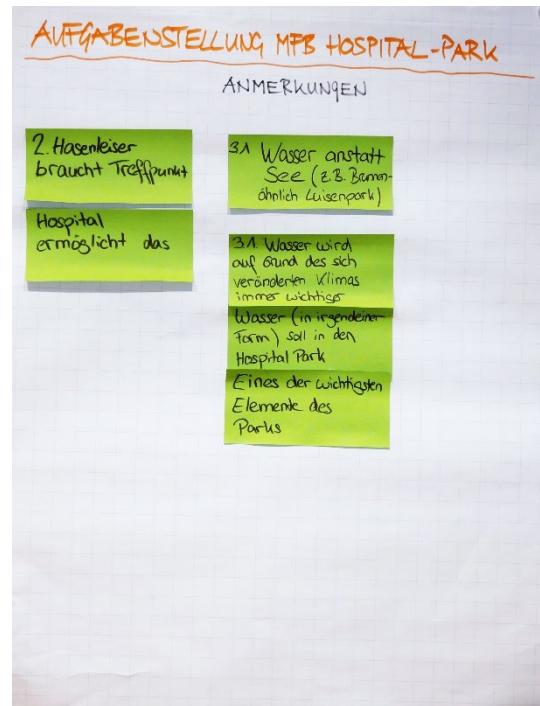 AUFGABENSTELLUNG MFB HOSPITAL-PARK
ANMERKUNGEN
2. Hasenleiser
braucht Treffpunkt
Hospital
ermöglicht das
3.1 Wasser anstatt
See (z.B. Brunnen-
ähnlich Luisenpark)
3.1. Wasser wird
auf Grund des sich
veränderten Klimas
immer wichtiger
Wasser (in irgendeiner
Form) soll in den
Hospital Park
Eines der wichtigsten
Elemente des
Parks